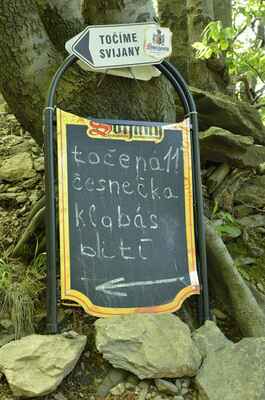 TOČÍME
SVIJANY
Svijany
točená 11
česnečka
klobás
blití